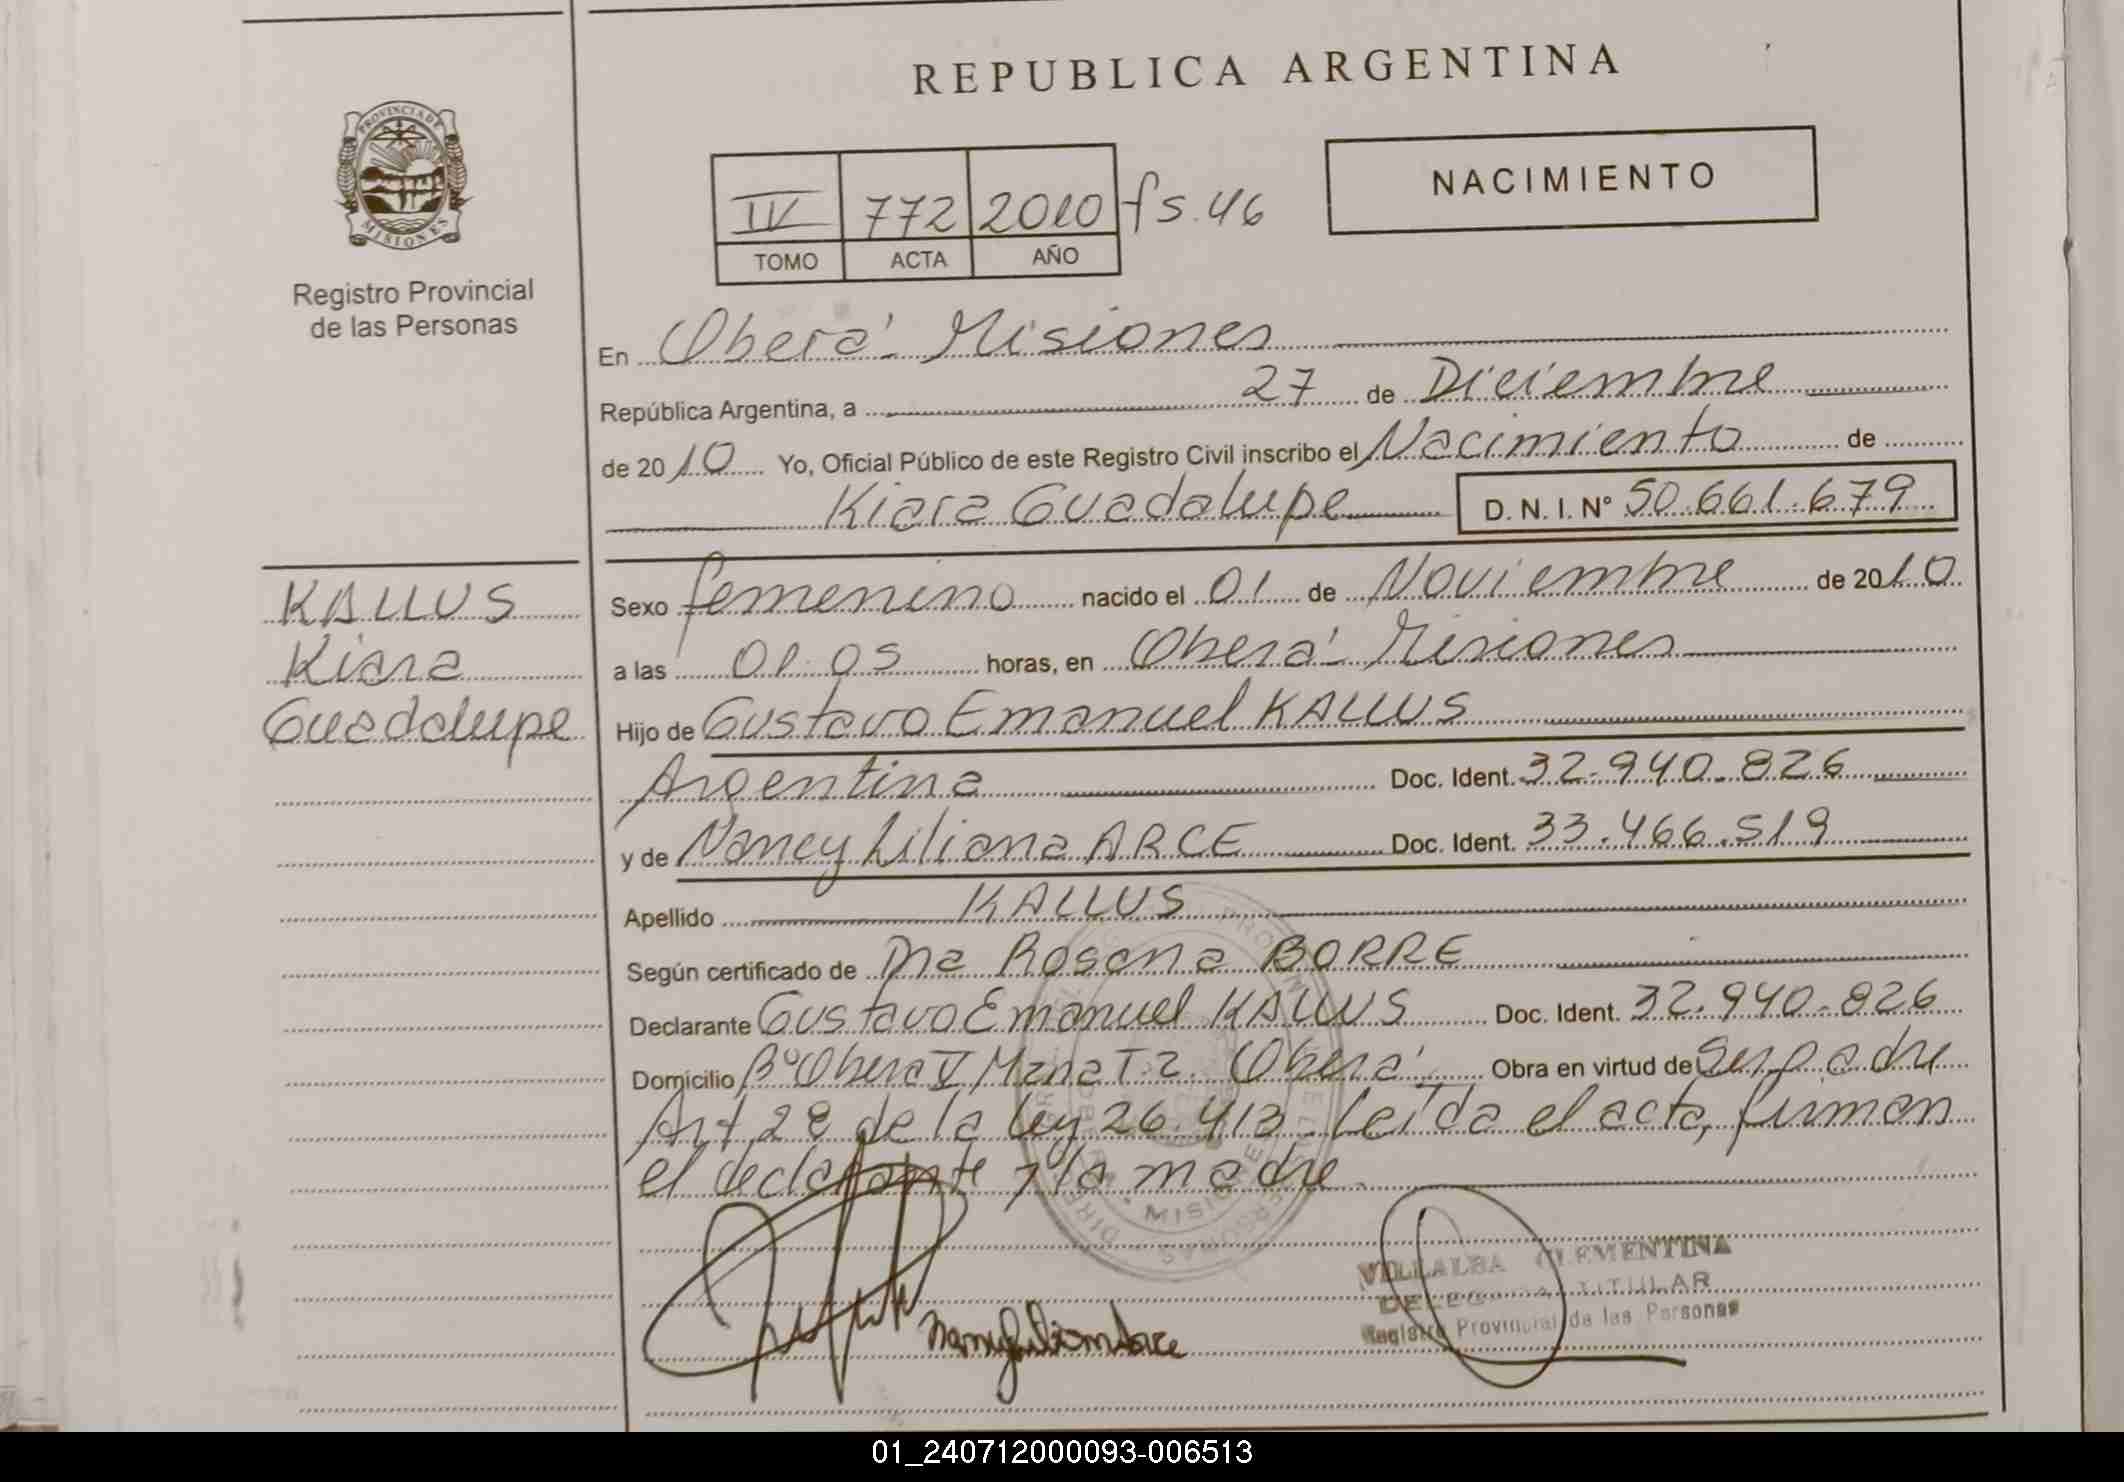 REPUBLICA ARGENTINA
PROVINCIA DE
MISIONES
Registro Provincial
de las Personas
IV 772 2010 fs. 46
TOMO ACTA AÑO
NACIMIENTO
En Oberá Misiones
República Argentina, a 27 de Diciembre
de 2010 Yo, Oficial Público de este Registro Civil inscribo el Nacimiento de
Kiara Guadalupe D. N. I. Nº 50.661.679
KALLUS
Kiara
Guadalupe
Sexo femenino nacido el 01 de Noviembre de 2010
a las 01.05 horas, en Oberá Misiones
Hijo de Gustavo Emanuel KALLUS
Argentina Doc. Ident. 32.940.826
y de Nancy Liliana ARCE Doc. Ident. 33.466.519
Apellido KALLUS
Según certificado de Dra Rosana BORRE
Declarante Gustavo Emanuel KALLUS Doc. Ident. 32.940.826
Domicilio Bº Obera V Mzna T. 2 Oberá Obra en virtud de Ser padre
Art 28 de la ley 26.413. Leída el acta, firman
el declarante y la madre
VILLALBA CLEMENTINA
DELEGADA TITULAR
Registro Provincial de las Personas
01_240712000093-006513